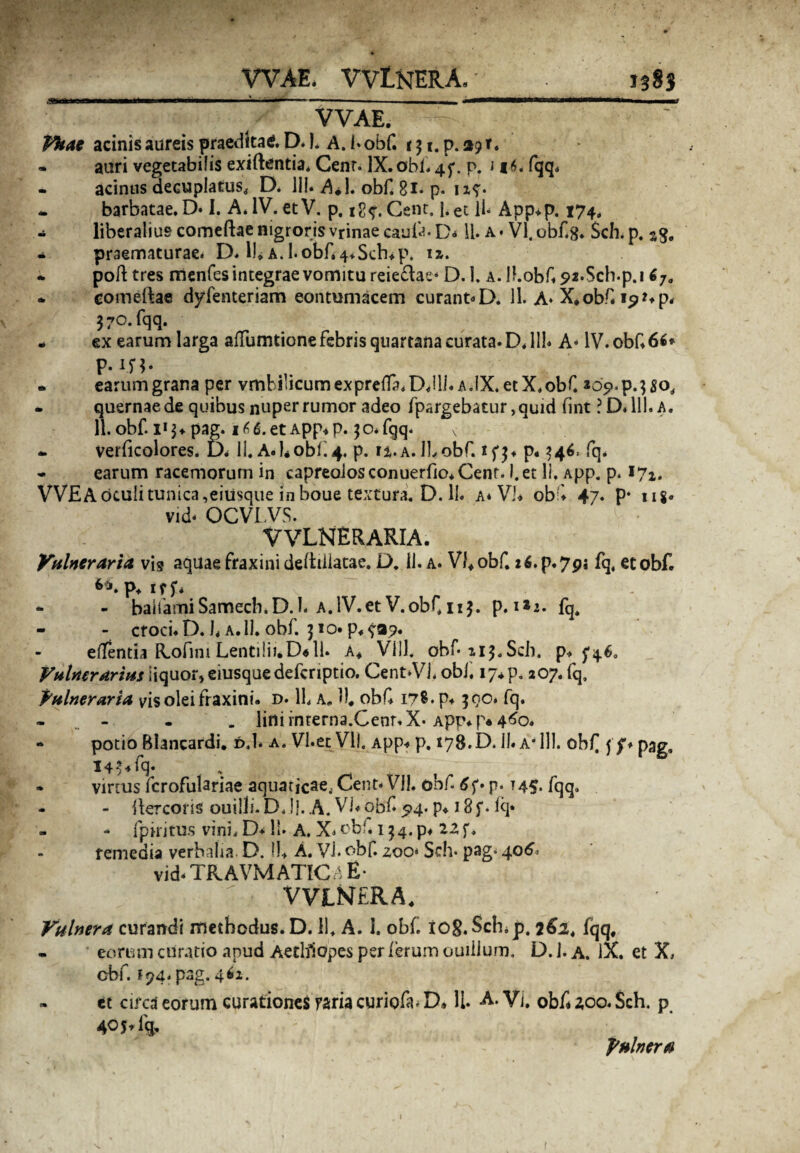 VVAE. VVLNERA. 1383
VVAE.
Vuae acinis aureis praeditae. D. I. A. I. obſ. 131. p. 291.
- auri vegetabilis exiſtentia. Cent. IX. obſ. 45. p. 116. ſqq.
- acinus decuplatus. D. III. A. I. obſ. 81. p. 125.
- barbatae. D. I. A. IV. et V. p. 185. Cent. I. et II. App. p. 174.
- liberalius comeſtae nigroris vrinae cauſa. D. II. A. VI. obſ. 8. Sch. p. 28.
- praematurae. D. II. A. I. obſ. 4. Sch. p. 12.
- poſt tres menſes integrae vomitu reiectae. D. I. A. II. obſ. 92. Sch. p. 167.
- comeſtae dyſenteriam contumacem curant. D. II. A. X. obſ. 192. p.
370. ſqq.
- ex earum larga aſſumtione febris quartana curata. D. III. A. IV. obſ. 66.
p. 153.
- earum grana per vmbilicum expreſſa. D. III. A. IX. et X. obſ. 209. p. 380.
- quernae de quibus nuper rumor adeo ſpargebatur, quid ſint? D. III. A.
II. obſ. 113. pag. 166. et App. p. 30. ſqq.
- verſicolores. D. II. A. I. obſ. 4. p. 12. A. II. obſ. 153. p. 346. ſq.
- earum racemorum in capreolos conuerſio. Cent. I. et II. App. p. 172.
VVEA oculi tunica, eiusque in boue textura. D. II. A. VI. obſ. 47. p. 118.
vid. OCVLVS.
VVLNERARIA.
Vulneraria vis aquae fraxini deſtillatae. D. II. A. VI. obſ. 26. p. 79; ſq. et obſ.
62. p. 155.
- - balſami Samech. D. I. A. IV. et V. obſ. 113. p. 122. ſq.
- - croci. D. I. A. II. obſ. 310. p. 529.
- eſſentia Roſini Lentilii. D. II. A. VIII. obſ. 213. Sch. p. 546.
Vulnerarius liquor, eiusque deſcriptio. Cent. VI. obſ. 17. p. 207. ſq.
Vulneraria vis olei fraxini. D. II. A. II. obſ. 178. p. 390. ſq.
- - - - lini interna. Cent. X. App. p. 460.
- potio Blancardi. D. I. A. VI. et VII. App. p. 178. D. II. A. III. obſ. 55. pag.
143. ſq.
- virtus ſcrofulariae aquaticae. Cent. VII. obſ. 65. p. 145. ſqq.
- - ſtercoris ouilli. D. II. A. VI. obſ. 94. p. 185. ſq.
- - ſpiritus vini. D. II. A. X. obſ. 134. p. 225.
- remedia verbalia. D. II. A. VI. obſ. 200. Sch. pag. 406.
vid. TRAVMATICAE.
VVLNERA.
Vulnera curandi methodus. D. II. A. I. obſ. 108. Sch. p. 262. ſqq.
- eorum curatio apud Aethiopes per ſerum ouillum. D. I. A. IX. et X.
obſ. 194. pag. 462.
- et circa eorum curationes varia curioſa. D. II. A. VI. obſ. 200. Sch. p.
405. ſq.
Vulnera